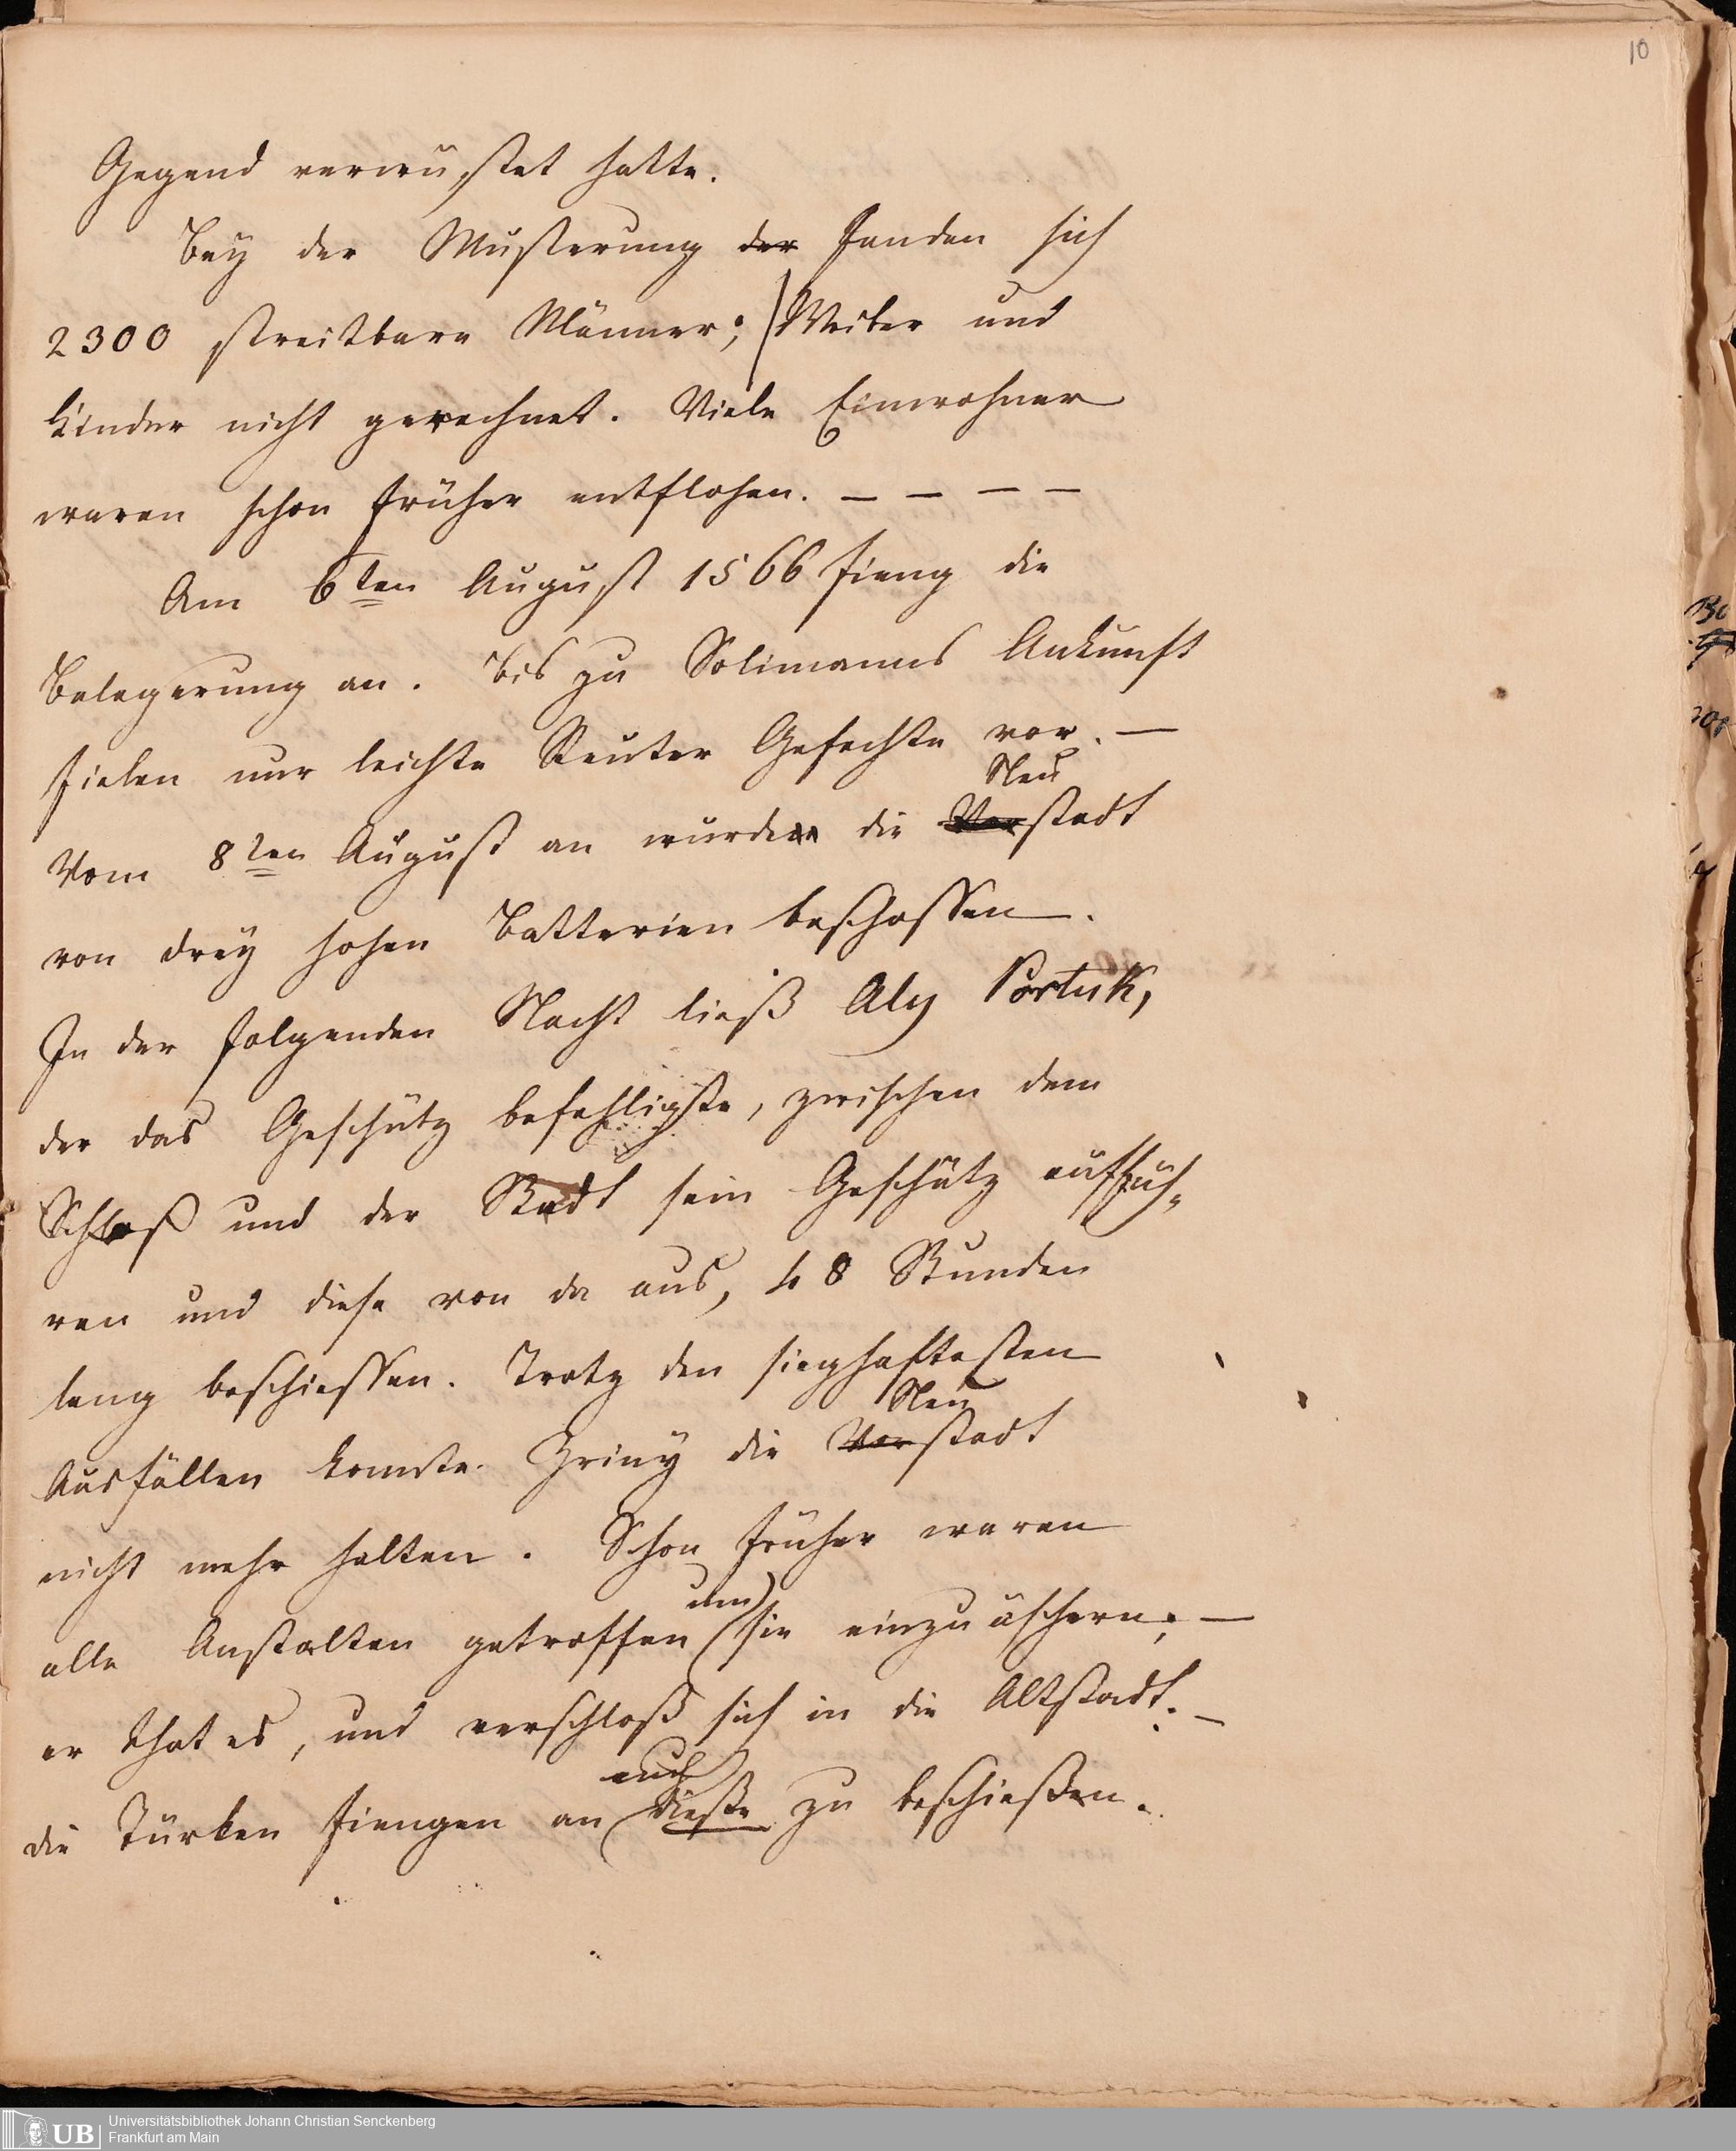 10
Gegend verwüstet hatte.
Bey der Musterung der fanden sich
2300 streitbare Männer; Weiber und
Kinder nicht gerechnet. Viele Einwohner
waren schon früher entflohen. — — — —
Am 6ten August 1566 fieng die
Belagerung an. Bis zu Solimanns Ankunft
fielen nur leichte Reuter Gefechte vor. —
Neu
Vom 8ten August an wurde die Vorstadt
von drey hohen Batterien beschossen.
In der folgenden Nacht ließ Aly Portuk,
der das Geschütz befehligte, zwischen dem
Schloß und der Stadt sein Geschütz auffüh-
ren und diese von da aus, 48 Stunden
lang beschiessen. Trotz den sieghaftesten
Neu
Ausfällen konnte Zriny die Vorstadt
nicht mehr halten. Schon früher waren
um
alle Anstalten getroffen sie einzuäschern; —
er that es, und verschloß sich in die Altstadt. —
auch
die Türken fiengen an diese zu beschießen.
UB
Universitätsbibliothek Johann Christian Senckenberg
Frankfurt am Main